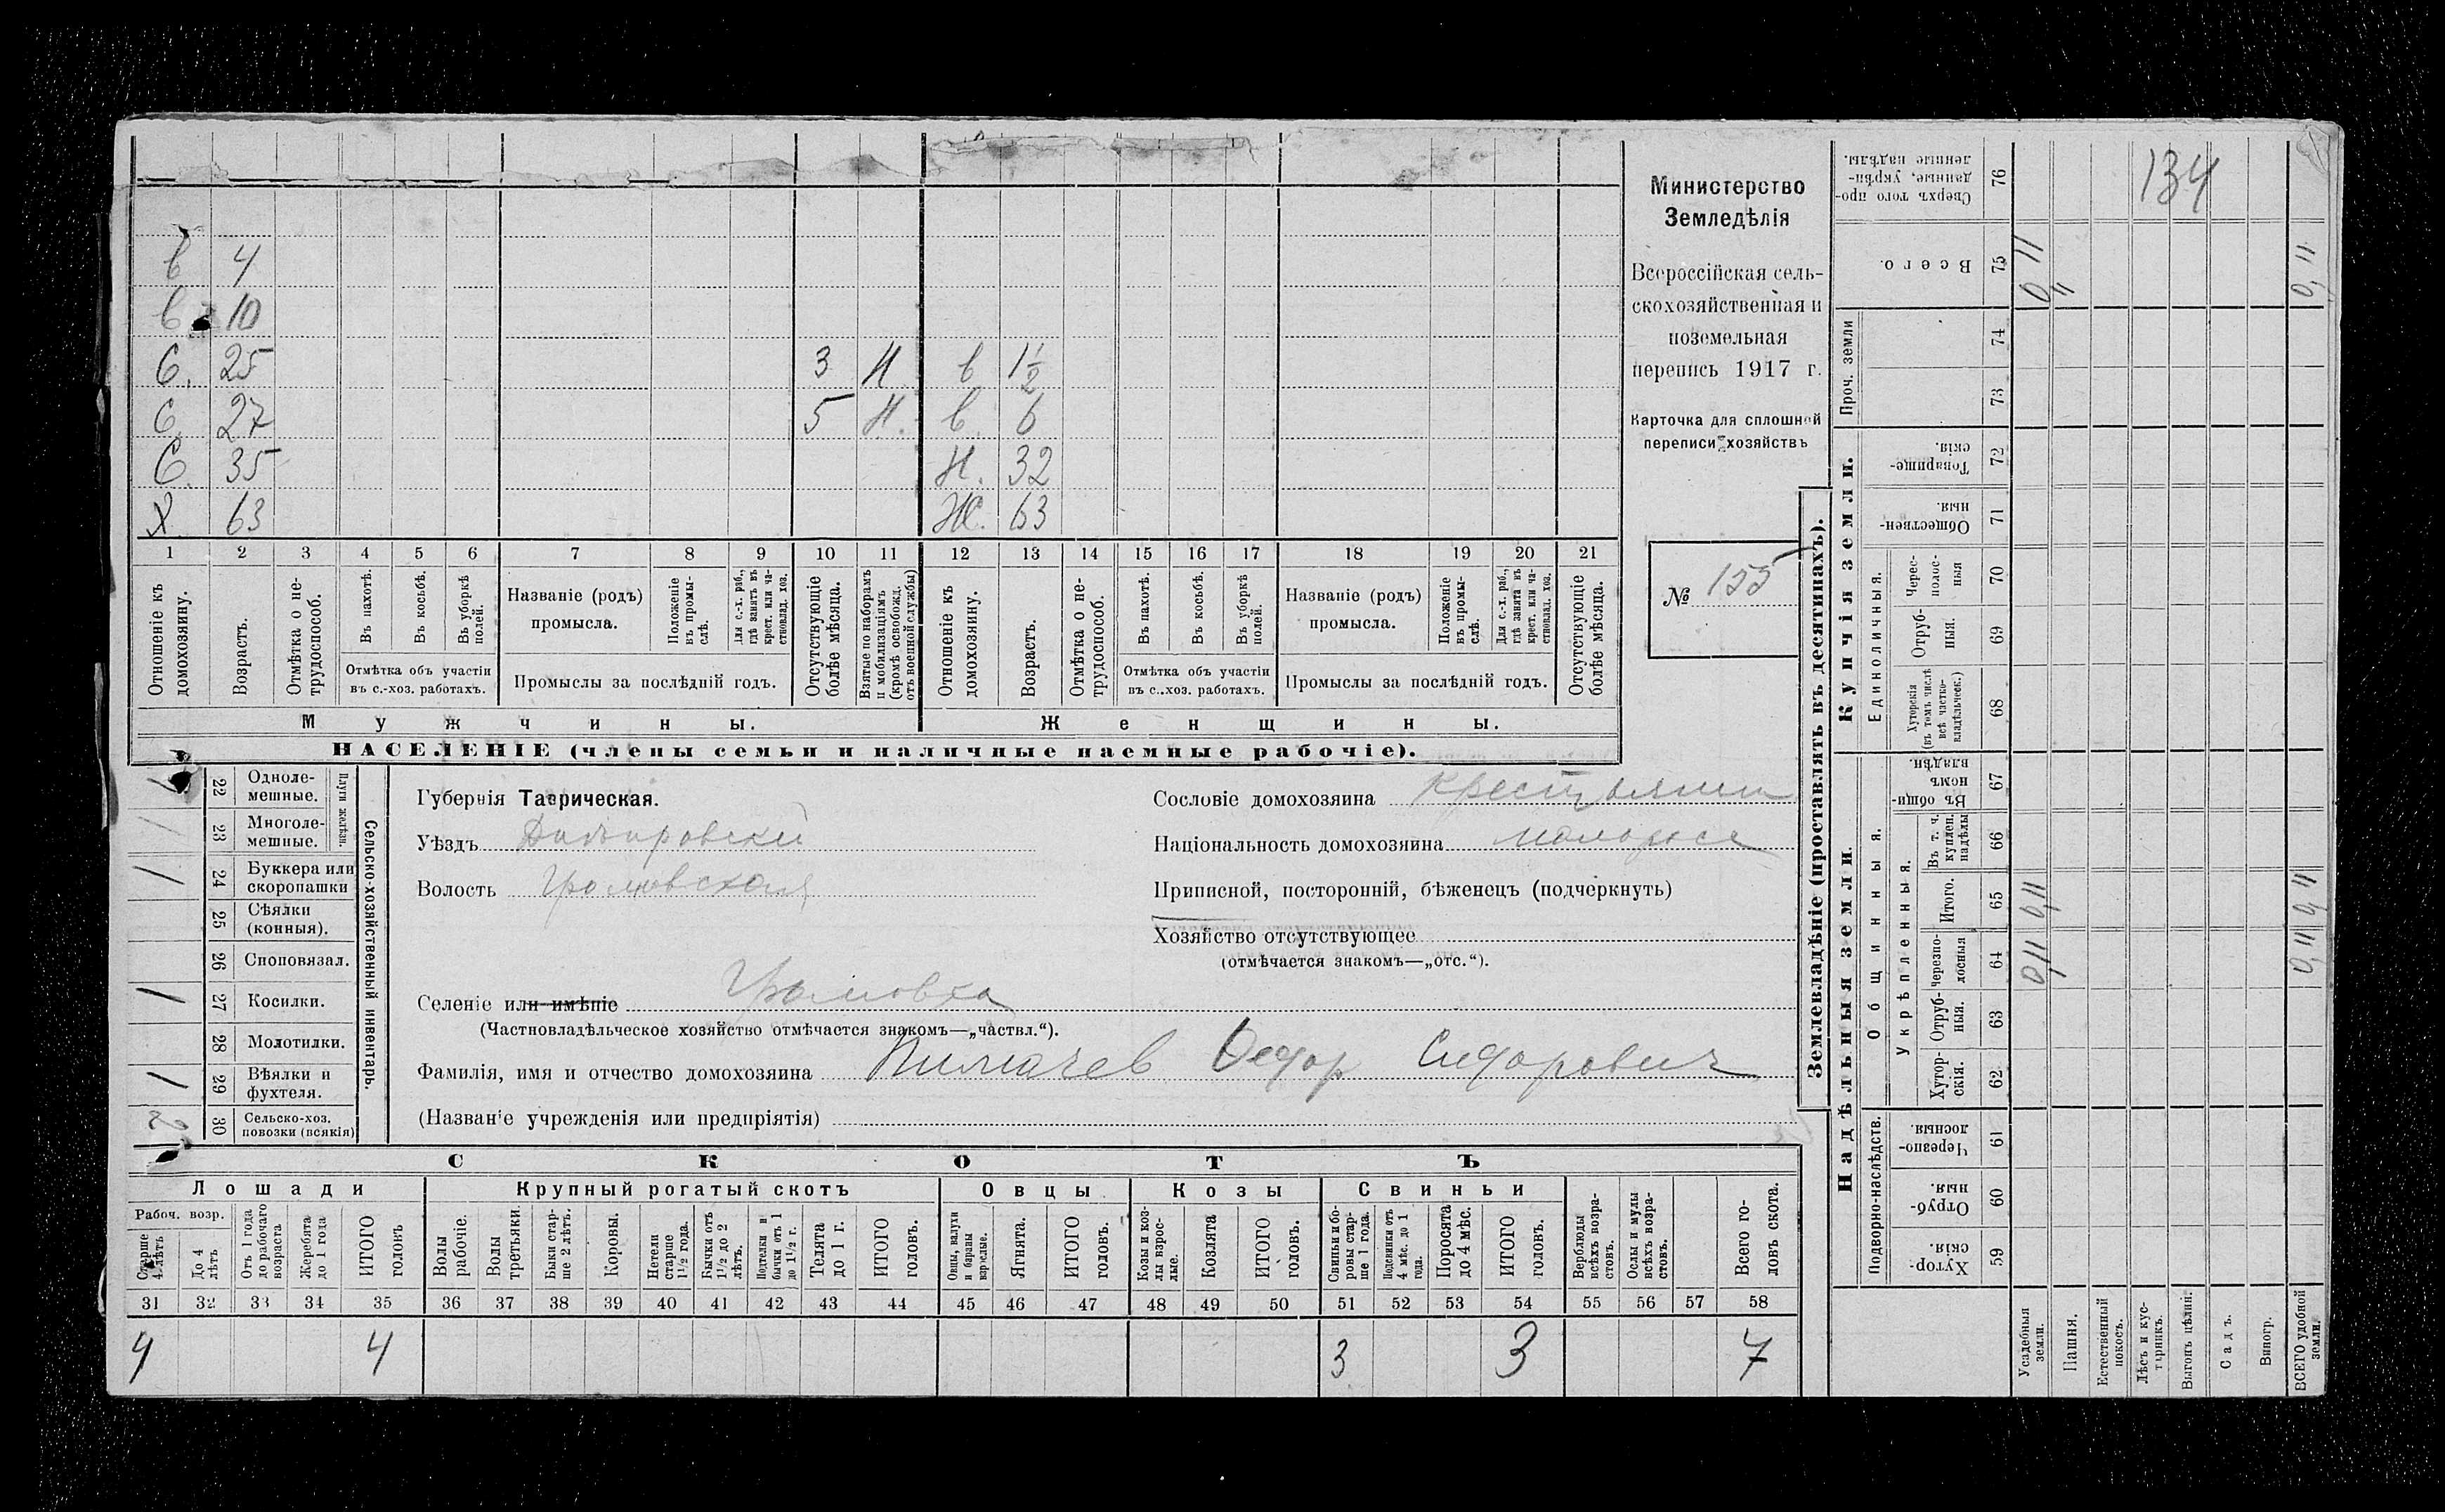 в 4
в 10
С. 25 3 Н в 1½
С. 27 5 Н. в. 6
С. 35 Н. 32
Х 63 Ж. 63
1 2 3 4 5 6 7 8 9 10 11 12 13 14 15 16 17 18 19 20 21
Отношеніе къ домохозяину.
Возрастъ.
Отмѣтка о не-трудоспособ.
Въ пахотѣ.
Въ косьбѣ.
Въ уборкѣ полей.
Отмѣтка объ участіи въ с.-хоз. работахъ.
Названіе (родъ) промысла.
Положеніе въ промы-слѣ.
Для с.-х. раб., гдѣ занятъ въ крест. или ча-стновлад. хоз.
Промыслы за послѣдній годъ.
Отсутствующіе болѣе мѣсяца.
Взятые по наборамъ и мобилизаціямъ (кромѣ освобожд. отъ военной службы)
Отношеніе къ домохозяину.
Возрастъ.
Отмѣтка о не-трудоспособ.
Въ пахотѣ.
Въ косьбѣ.
Въ уборкѣ полей.
Отмѣтка объ участіи въ с.-хоз. работахъ.
Названіе (родъ) промысла.
Положеніе въ промы-слѣ.
Для с.-х. раб., гдѣ занята въ крест. или ча-стновлад. хоз.
Промыслы за послѣдній годъ.
Отсутствующіе болѣе мѣсяца.
Мужчины. Женщины.
НАСЕЛЕНІЕ (члены семьи и наличные наемные рабочіе).
Министерство
Земледѣлія
Всероссійская сель-
скохозяйственная и
поземельная
перепись 1917 г.
Карточка для сплошной
переписи хозяйствъ
№ 155
22 Одноле-мешные.
23 Многоле-мешные.
Плуги желѣзн.
24 Буккера или скоропашки
25 Сѣялки (конныя).
26 Сноповязал.
27 Косилки.
28 Молотилки.
29 Вѣялки и фухтеля.
30 Сельско-хоз. повозки (всякія)
Сельско-хозяйственный инвентарь.
Губернія Таврическая.
Уѣздъ Днѣпровскій
Волость Громовская
Селеніе или имѣніе Громовка
(Частновладѣльческое хозяйство отмѣчается знакомъ—„частвл.“).
Фамилія, имя и отчество домохозяина Федор Сидорович
(Названіе учрежденія или предпріятія)
Сословіе домохозяина крестьянин
Національность домохозяина малоросс
Приписной, посторонній, бѣженецъ (подчеркнуть)
Хозяйство отсутствующее
(отмѣчается знакомъ—„отс.“).
СКОТЪ
Лошади Крупный рогатый скотъ Овцы Козы Свиньи
Рабоч. возр.
Старше 4 лѣтъ
До 4 лѣтъ
Отъ 1 года до рабочаго возраста
Жеребята до 1 года
ИТОГО головъ
Волы рабочіе.
Волы третьяки.
Быки стар-ше 2 лѣтъ.
Коровы.
Нетели старше 1½ года.
Бычки отъ 1½ до 2 лѣтъ.
Подтелки и бычки отъ 1 до 1½ г.
Телята до 1 г.
ИТОГО головъ.
Овцы, валухи и бараны взрослые.
Ягнята.
ИТОГО головъ.
Козы и коз-лы взрос-лые.
Козлята
ИТОГО головъ.
Свиньи и бо-ровы стар-ше 1 года.
Подсвинки отъ 4 мѣс. до 1 года.
Поросята до 4 мѣс.
ИТОГО головъ.
Верблюды всѣхъ возра-стовъ.
Ослы и мулы всѣхъ возра-стовъ.
Всего го-ловъ скота.
31 32 33 34 35 36 37 38 39 40 41 42 43 44 45 46 47 48 49 50 51 52 53 54 55 56 57 58
4 4 3 3 7
Землевладѣніе (проставлять въ десятинахъ).
Надѣльныя земли.
Купчія земли.
Проч. земли
Подворно-наслѣдств.
Общинныя.
Укрѣпленныя.
Единоличныя.
Сверхъ того про-данные, укрѣп-ленные надѣлы. 76 134
Всего. 75 0,11 0,11
74
73
Товарище-скія. 72
Обществен-ныя. 71
Черес-полос-ныя 70
Отруб-ныя. 69
Хуторскія (въ томъ числѣ всѣ частно-владѣльческ.) 68
Въ общин-номъ владѣн. 67
Въ т. ч. куплен. надѣлы 66
Итого. 65 0,11 0,11
Черезпо-лосныя 64 0,11 0,11
Отруб-ныя. 63
Хутор-скія. 62
Черезпо-лосныя. 61
Отруб-ныя. 60
Хутор-скія. 59
Усадебныя земли.
Пашня.
Естественный покосъ.
Лѣсъ и кус-тарникъ.
Выгонъ цѣлин.
Садъ.
Виногр.
ВСЕГО удобной земли.